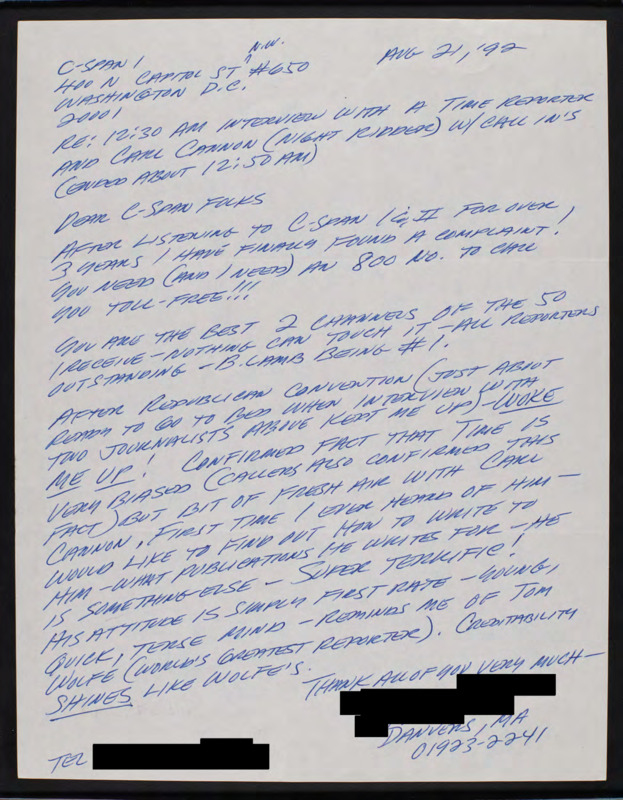 AUG 21, '92
C-SPAN 1
400 N CAPITOL ST N.W. #650
WASHINGTON D.C.
20001
RE: 12:30 AM INTERVIEW WITH A TIME REPORTER
AND CARL CANNON (NIGHT RIDDER) W/ CALL IN'S
(ENDED ABOUT 12:50 AM)
DEAR C-SPAN FOLKS
AFTER LISTENING TO C-SPAN I & II FOR OVER
3 YEARS I HAVE FINALLY FOUND A COMPLAINT!
YOU NEED (AND I NEED) AN 800 NO. TO CALL
YOU TOLL-FREE!!!
YOU ARE THE BEST 2 CHANNELS OF THE 50
I RECEIVE - NOTHING CAN TOUCH IT - ALL REPORTERS
OUTSTANDING - B. LAMB BEING #1.
AFTER REPUBLICAN CONVENTION (JUST ABOUT
READY TO GO TO BED WHEN INTERVIEW WITH
TWO JOURNALISTS ABOVE KEPT ME UP) - WOKE
ME UP! CONFIRMED FACT THAT TIME IS
VERY BIASED (CALLERS ALSO CONFIRMED THIS
FACT) BUT BIT OF FRESH AIR WITH CARL
CANNON, FIRST TIME I EVER HEARD OF HIM -
WOULD LIKE TO FIND OUT HOW TO WRITE TO
HIM - WHAT PUBLICATIONS HE WRITES FOR - HE
IS SOMETHING ELSE - SUPER TERRIFIC!
HIS ATTITUDE IS SIMPLY FIRST RATE - YOUNG,
QUICK, TERSE MIND - REMINDS ME OF TOM
WOLFE (WORLD'S GREATEST REPORTER). CREDITABILITY
SHINES LIKE WOLFE'S.
THANK ALL OF YOU VERY MUCH -
DANVERS, MA
01923-2241
TEL